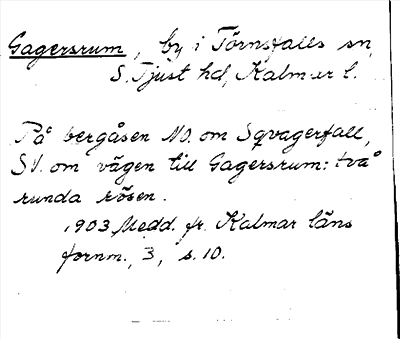 Gagersrum, by i Törnsfalls sn,
S. Tjust hd, Kalmar l.
På bergåsen NO. om Sqvagerfall,
SV. om vägen till Gagersrum: två
runda rösen.
1903 Medd. fr. Kalmar läns
fornm., 3, s. 10.